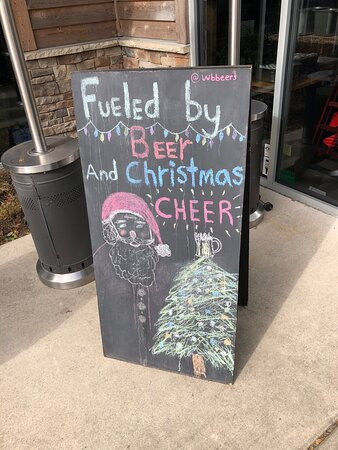 @ wbbeers
Fueled by
Beer
And Christmas
CHEER